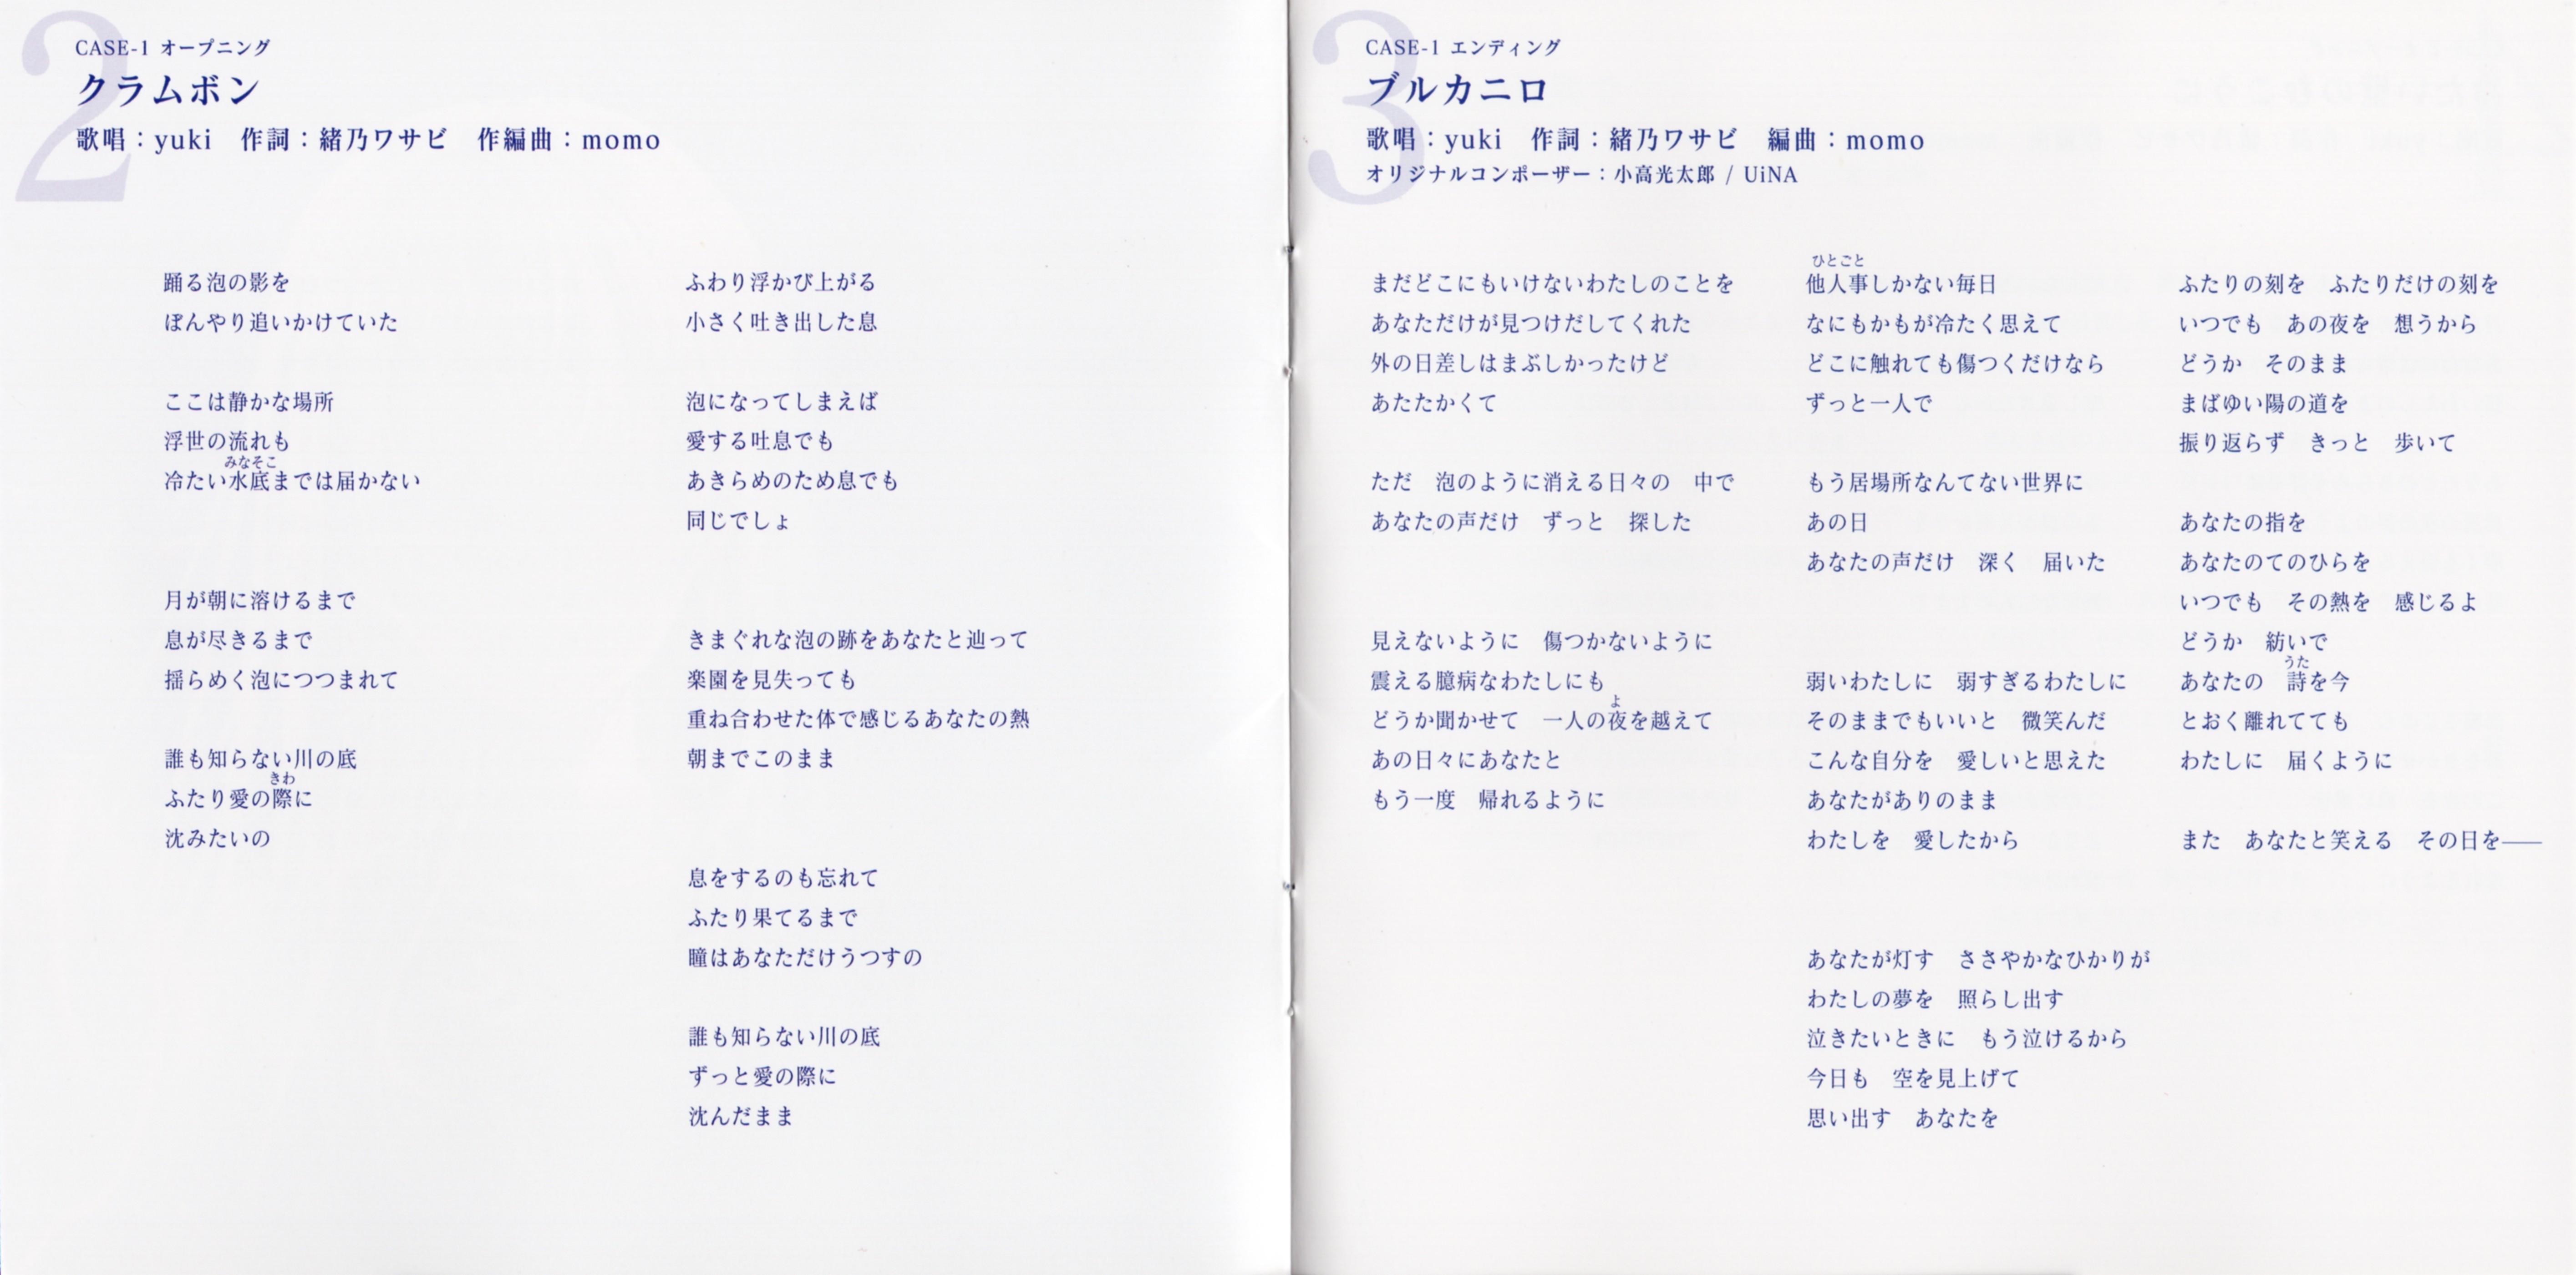 2
CASE-1 オープニング
クラムボン
歌唱：yuki　作詞：緒乃ワサビ　作編曲：momo
踊る泡の影を
ぼんやり追いかけていた
ここは静かな場所
浮世の流れも
みなそこ
冷たい水底までは届かない
月が朝に溶けるまで
息が尽きるまで
揺らめく泡につつまれて
誰も知らない川の底
きわ
ふたり愛の際に
沈みたいの
ふわり浮かび上がる
小さく吐き出した息
泡になってしまえば
愛する吐息でも
あきらめのため息でも
同じでしょ
きまぐれな泡の跡をあなたと辿って
楽園を見失っても
重ね合わせた体で感じるあなたの熱
朝までこのまま
息をするのも忘れて
ふたり果てるまで
瞳はあなただけうつすの
誰も知らない川の底
ずっと愛の際に
沈んだまま
3
CASE-1 エンディング
ブルカニロ
歌唱：yuki　作詞：緒乃ワサビ　編曲：momo
オリジナルコンポーザー：小高光太郎 / UiNA
まだどこにもいけないわたしのことを
あなただけが見つけだしてくれた
外の日差しはまぶしかったけど
あたたかくて
ただ　泡のように消える日々の　中で
あなたの声だけ　ずっと　探した
見えないように　傷つかないように
震える臆病なわたしにも
よ
どうか聞かせて　一人の夜を越えて
あの日々にあなたと
もう一度　帰れるように
ひとごと
他人事しかない毎日
なにもかもが冷たく思えて
どこに触れても傷つくだけなら
ずっと一人で
もう居場所なんてない世界に
あの日
あなたの声だけ　深く　届いた
弱いわたしに　弱すぎるわたしに
そのままでもいいと　微笑んだ
こんな自分を　愛しいと思えた
あなたがありのまま
わたしを　愛したから
あなたが灯す　ささやかなひかりが
わたしの夢を　照らし出す
泣きたいときに　もう泣けるから
今日も　空を見上げて
思い出す　あなたを
ふたりの刻を　ふたりだけの刻を
いつでも　あの夜を　想うから
どうか　そのまま
まばゆい陽の道を
振り返らず　きっと　歩いて
あなたの指を
あなたのてのひらを
いつでも　その熱を　感じるよ
どうか　紡いで
うた
あなたの　詩を今
とおく離れてても
わたしに　届くように
また　あなたと笑える　その日を――